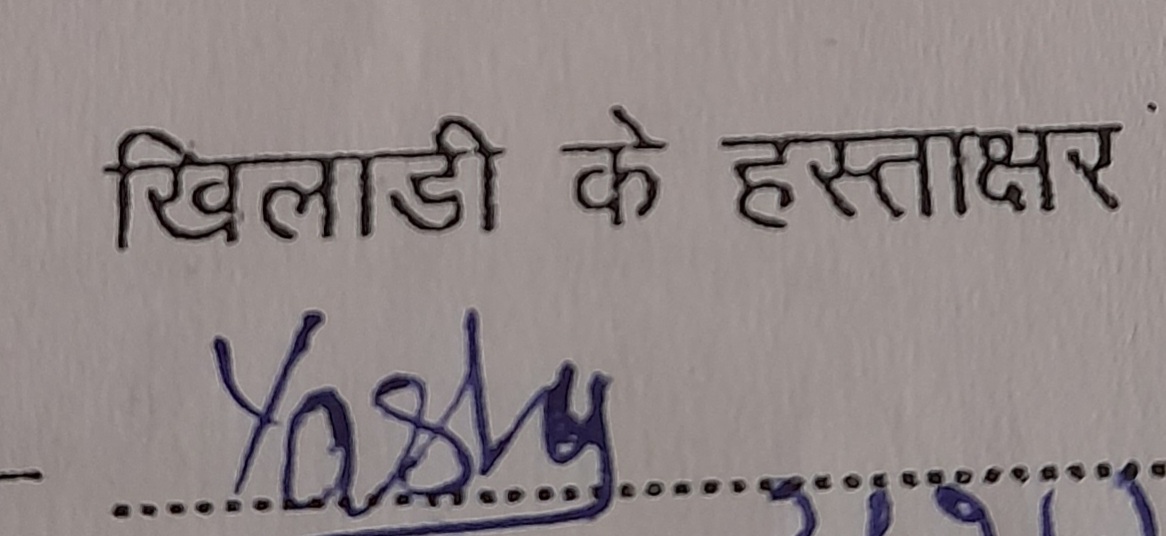 खिलाडी के हस्ताक्षर
Yashu